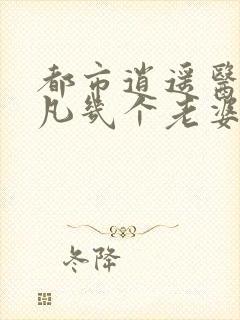 都市逍遥医
凡几个老婆
冬降